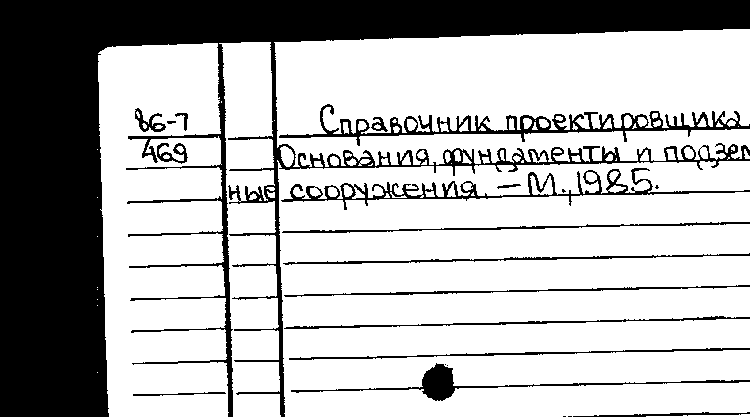 86-7 Справочник проектировщика.
469 Основания, фундаменты и подзем
ные сооружения. – М., 1985.